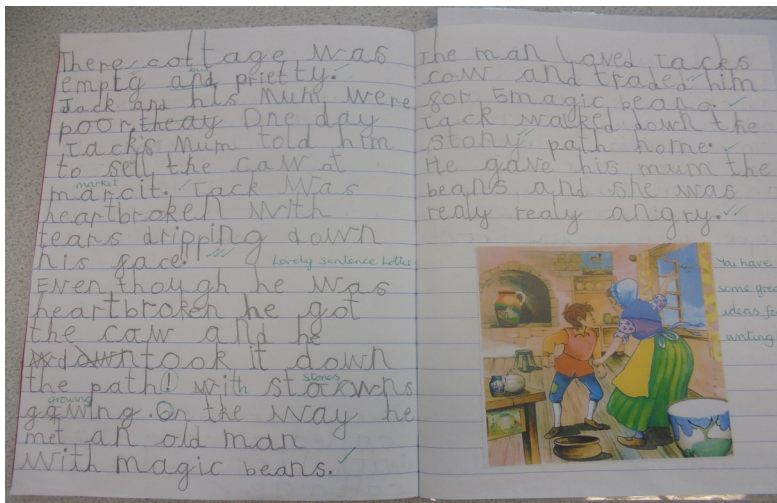 There cottage was
empty and prietty.
Jack and his Mum were
poor. theay One day
Jack's Mum told him
to sell the caw at
market
marcit. Jack was
heartbroken with
tears dripping down
his face!
Lovely sentence Lottie
Even though he was
heartbroken he got
the caw and he
down took it down
the path! with
stones
growing
gowing. On the way he
met an old man
with magic beans.
The man loved Jacks
cow and traded him
for 5 magic beans.
Jack walked down the
stony path home.
He gave his mum the
beans and she was
realy realy angry.
You have
some grea
ideas fo
writing